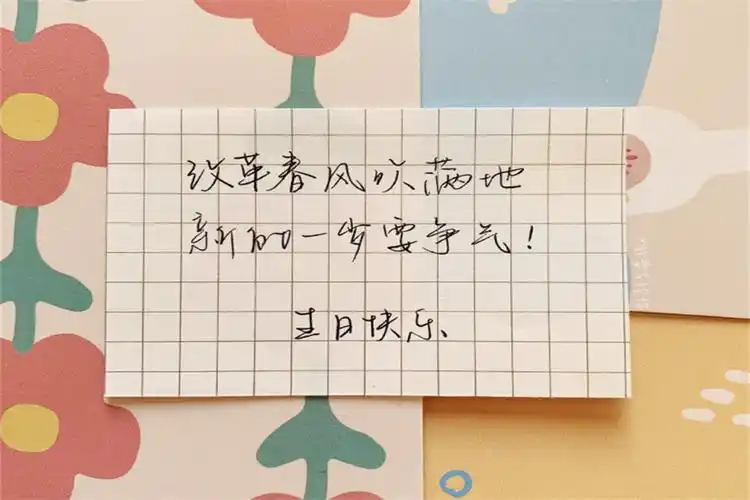 改革春风吹满地
新的一岁要争气!
生日快乐、